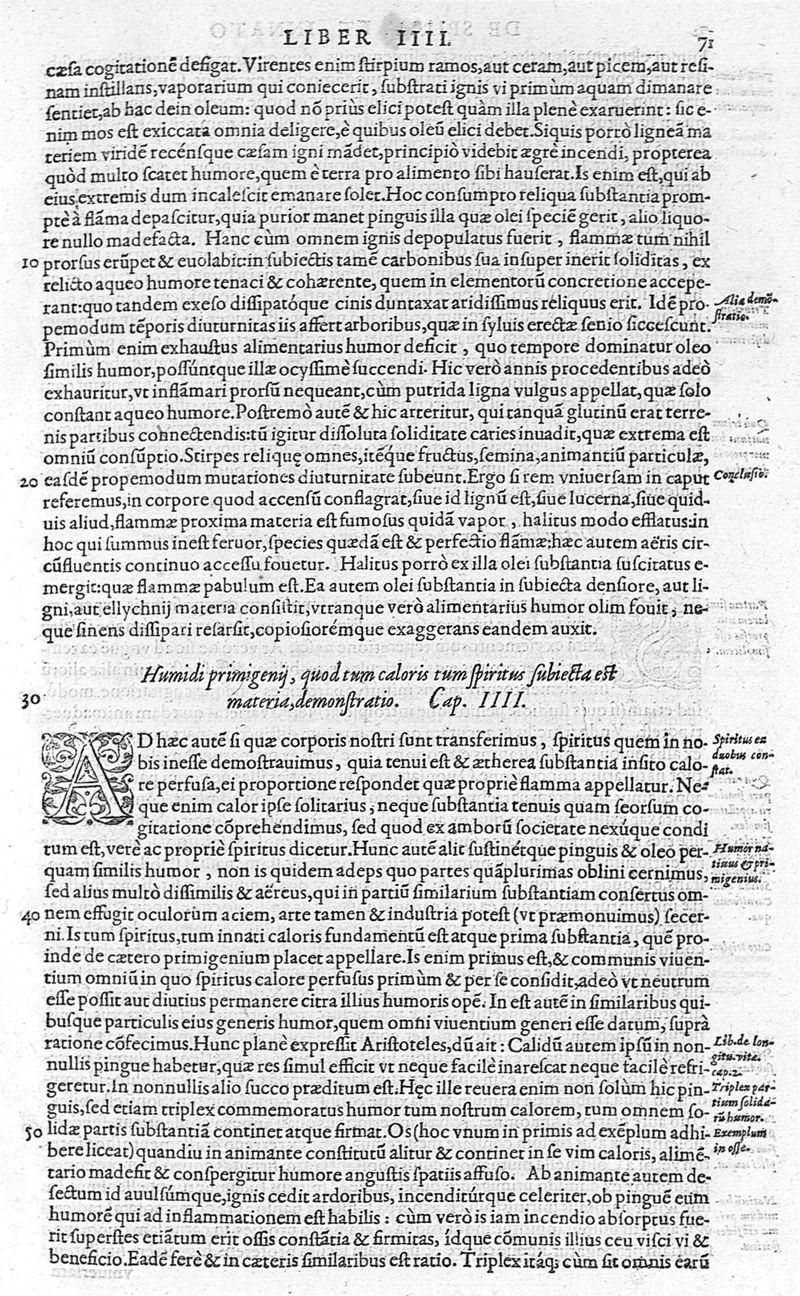 LIBER IIII. 71
cæsa cogitationē defigat. Virentes enim stirpium ramos, aut ceram, aut picem, aut resi-
nam instillans, vaporarium qui coniecerit, substrati ignis vi primùm aquam dimanare
sentiet, ab hac dein oleum: quod nō priùs elici potest quàm illa plenè exaruerint: sic e-
nim mos est exiccata omnia deligere, è quibus oleū elici debet. Siquis porrò ligneā ma
teriem viridē recénsque cæsam igni mādet, principiò videbit ægrè incendi, propterea
quòd multo scatet humore, quem è terra pro alimento sibi hauserat. Is enim est, qui ab
eius extremis dum incalescit emanare solet. Hoc consumpto reliqua substantia prom-
ptè à flāma depascitur, quia purior manet pinguis illa quæ olei speciē gerit, alio liquo-
re nullo madefacta. Hanc cùm omnem ignis depopulatus fuerit, flammæ tum nihil
10 prorsus erūpet & euolabit: in subiectis tamē carbonibus sua insuper inerit soliditas, ex
relicto aqueo humore tenaci & cohærente, quem in elementorū concretione accepe-
rant: quo tandem exeso dissipatóque cinis duntaxat aridissimus reliquus erit. Idē pro-
Alia demō-
stratio.
pemodum tēporis diuturnitas iis affert arboribus, quæ in syluis erectæ senio siccescunt.
Primùm enim exhaustus alimentarius humor deficit, quo tempore dominatur oleo
similis humor, possúntque illæ ocyssimè succendi. Hic verò annis procedentibus adeò
exhauritur, vt inflāmari prorsū nequeant, cùm putrida ligna vulgus appellat, quæ solo
constant aqueo humore. Postremò autē & hic arteritur, qui tanquā glutinū erat terre-
nis partibus connectendis: tū igitur dissoluta soliditate caries inuadit, quæ extrema est
omniū consūptio. Stirpes reliquę omnes, itéque fructus, semina, animantiū particulæ,
20 easdē propemodum mutationes diuturnitate subeunt. Ergo si rem vniuersam in caput
Conclusio.
referemus, in corpore quod accensū conflagrat, siue id lignū est, siue lucerna, siue quid-
uis aliud, flammæ proxima materia est fumosus quidā vapor, halitus modo efflatus: in
hoc qui summus inest feruor, species quædā est & perfectio flāmæ; hæc autem aëris cir-
cūfluentis continuo accessu fouetur. Halitus porrò ex illa olei substantia suscitatus e-
mergit: quæ flammæ pabulum est. Ea autem olei substantia in subiecta densiore, aut li-
gni, aut ellychnij materia consistit, vtranque verò alimentarius humor olim fouit, ne-
que sinens dissipari resarsit, copiosiorémque exaggerans eandem auxit.
Humidi primigenij, quod tum caloris tum spiritus subiecta est
30 materia, demonstratio. Cap. IIII.
AD hæc autē si quæ corporis nostri sunt transferimus, spiritus quem in no-
Spiritus ex
duobus con-
stat.
bis inesse demostrauimus, quia tenui est & ætherea substantia insito calo-
re perfusa, ei proportione respondet quæ propriè flamma appellatur. Ne-
que enim calor ipse solitarius, neque substantia tenuis quam seorsum co-
gitatione cōprehendimus, sed quod ex amborū societate nexúque condi
tum est, verè ac propriè spiritus dicetur. Hunc autē alit sustinétque pinguis & oleo per-
Humor na-
tiuus & pri-
migenius.
quam similis humor, non is quidem adeps quo partes quāplurimas oblini cernimus,
sed alius multò dissimilis & aëreus, qui in partiū similarium substantiam consertus om-
40 nem effugit oculorum aciem, arte tamen & industria potest (vt præmonuimus) secer-
ni. Is tum spiritus, tum innati caloris fundamentū est atque prima substantia, quē pro-
inde de cætero primigenium placet appellare. Is enim primus est, & communis viuen-
tium omniū in quo spiritus calore perfusus primùm & per se considit, adeò vt neutrum
esse possit aut diutius permanere citra illius humoris opē. In est autē in similaribus qui-
busque particulis eius generis humor, quem omni viuentium generi esse datum, suprà
ratione cōfecimus. Hunc planè expressit Aristoteles, dū ait: Calidū autem ipsū in non-
Lib. de lon-
git. vitæ.
cap. 2.
nullis pingue habetur, quæ res simul efficit vt neque facilè inarescat neque facilè refri-
geretur. In nonnullis alio succo præditum est. Hęc ille reuera enim non solùm hic pin-
Triplex par-
tium solida-
rū humor.
guis, sed etiam triplex commemoratus humor tum nostrum calorem, tum omnem so-
50 lidæ partis substantiā continet atque firmat. Os (hoc vnum in primis ad exēplum adhi-
Exemplum
in osse.
bere liceat) quandiu in animante constitutū alitur & continet in se vim caloris, alimē-
tario madefit & conspergitur humore angustis spatiis affuso. Ab animante autem de-
sectum id auulsúmque, ignis cedit ardoribus, incenditúrque celeriter, ob pinguē eum
humorē qui ad inflammationem est habilis: cùm verò is iam incendio absorptus fue-
rit superstes etiātum erit ossis constātia & firmitas, ídque cōmunis illius ceu visci vi &
beneficio. Eadē ferè & in cæteris similaribus est ratio. Triplex itáq; cùm sit omnis earū